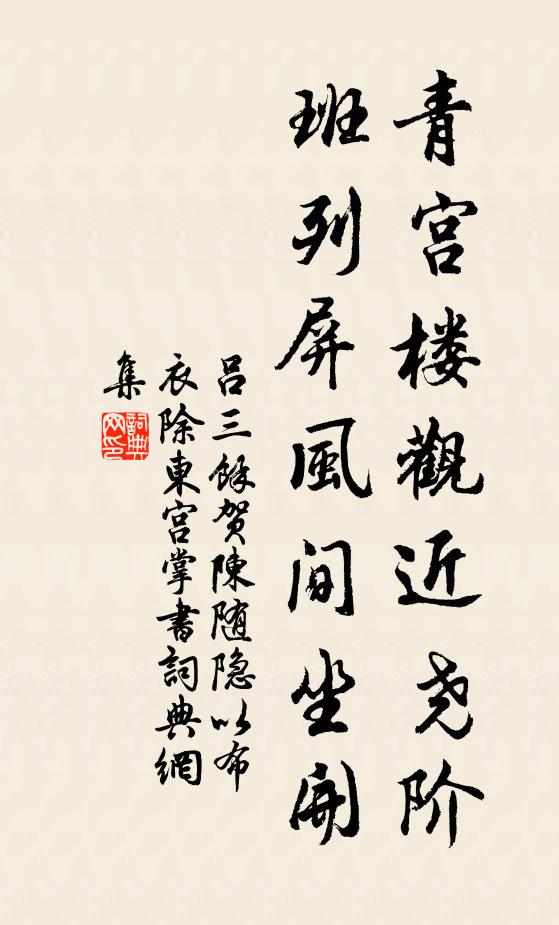 青宫楼觀近尧阶
班列屏風间坐開
吕三餘贺陳随隐以布
衣除東宫掌書詞典網
集
詞典网印